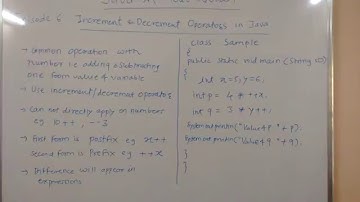 Increment & Decrement Operators in Java
→ Common operation with
number i.e. adding & subtracting
one from value of variable
→ Use increment/decrement operators
→ Can not directly apply on numbers
eg 10++ ; --3
→ First form is postfix eg x++
second form is Prefix eg ++x
→ Difference will appear in
expressions
class Sample
{
public static void main (String [])
{
int x=5, y=6;
int p = 4 * ++x;
int q = 3 * y++;
System.out.println("Value of p " + p);
System.out.println("Value of q " + q);
}
}